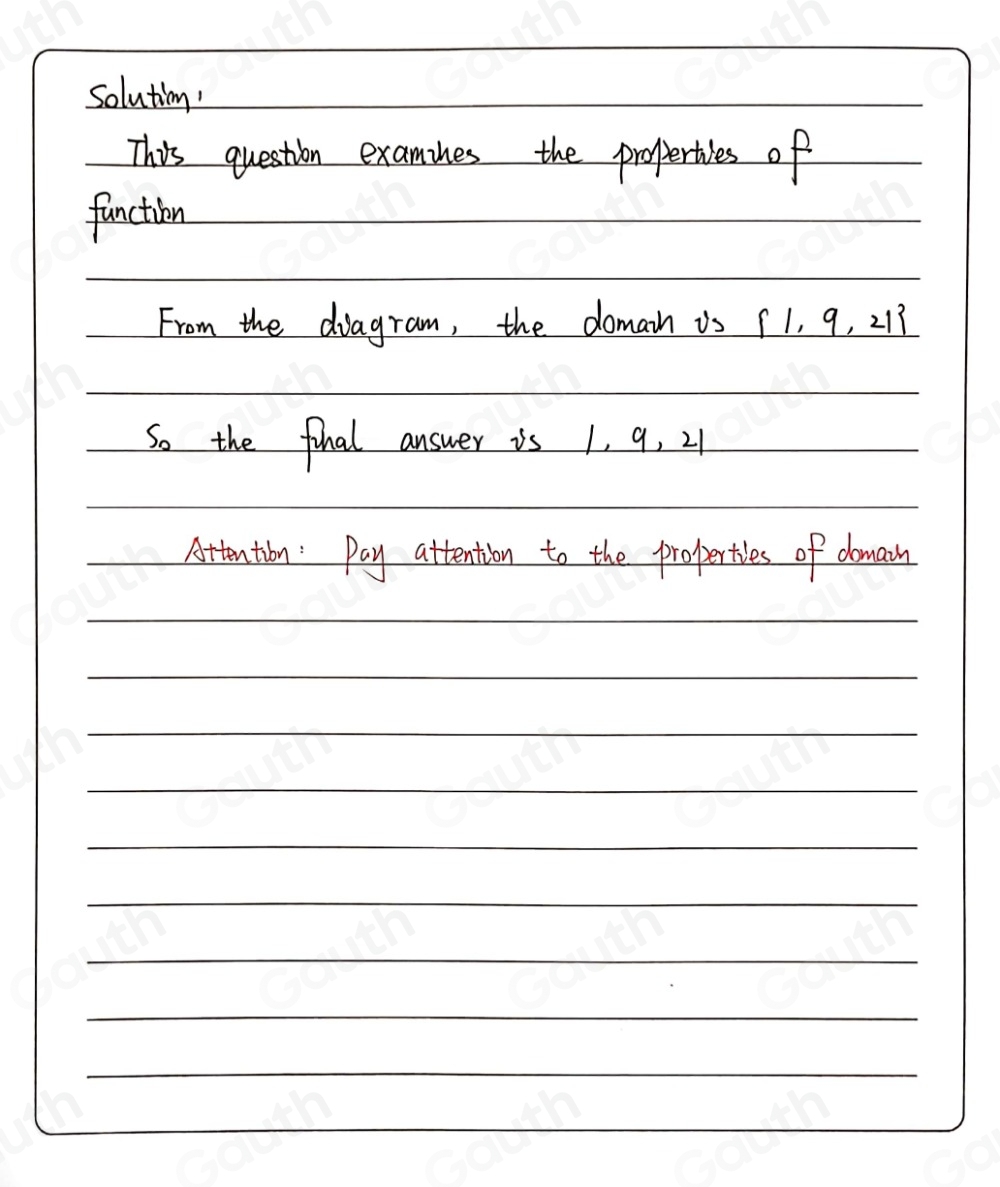 Solution:
This question examines the properties of
function
From the diagram, the domain is {1, 9, 21}
So the final answer is 1, 9, 21
Attention: Pay attention to the properties of domain
Gauth